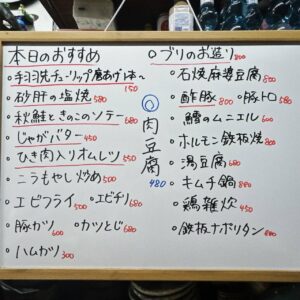 本日のおすすめ
・手羽先チューリップ唐あげ1本〜 150
・砂肝の塩焼 580
・秋鮭ときのこのソテー 680
・じゃがバター 450
・ひき肉入りオムレツ 550
・ニラもやし炒め 500
・エビフライ 500 ・エビチリ 680
・豚ガツ 600 ・カツとじ 680
・ハムカツ 300
◎肉豆腐 480
○ブリのお造り 800
・石焼麻婆豆腐 800
・酢豚 800 ・豚トロ 580
・鱈のムニエル 600
・ホルモン鉄板焼 800
・湯豆腐 680
・キムチ鍋 880
・鶏雑炊 450
・鉄板ナポリタン 880